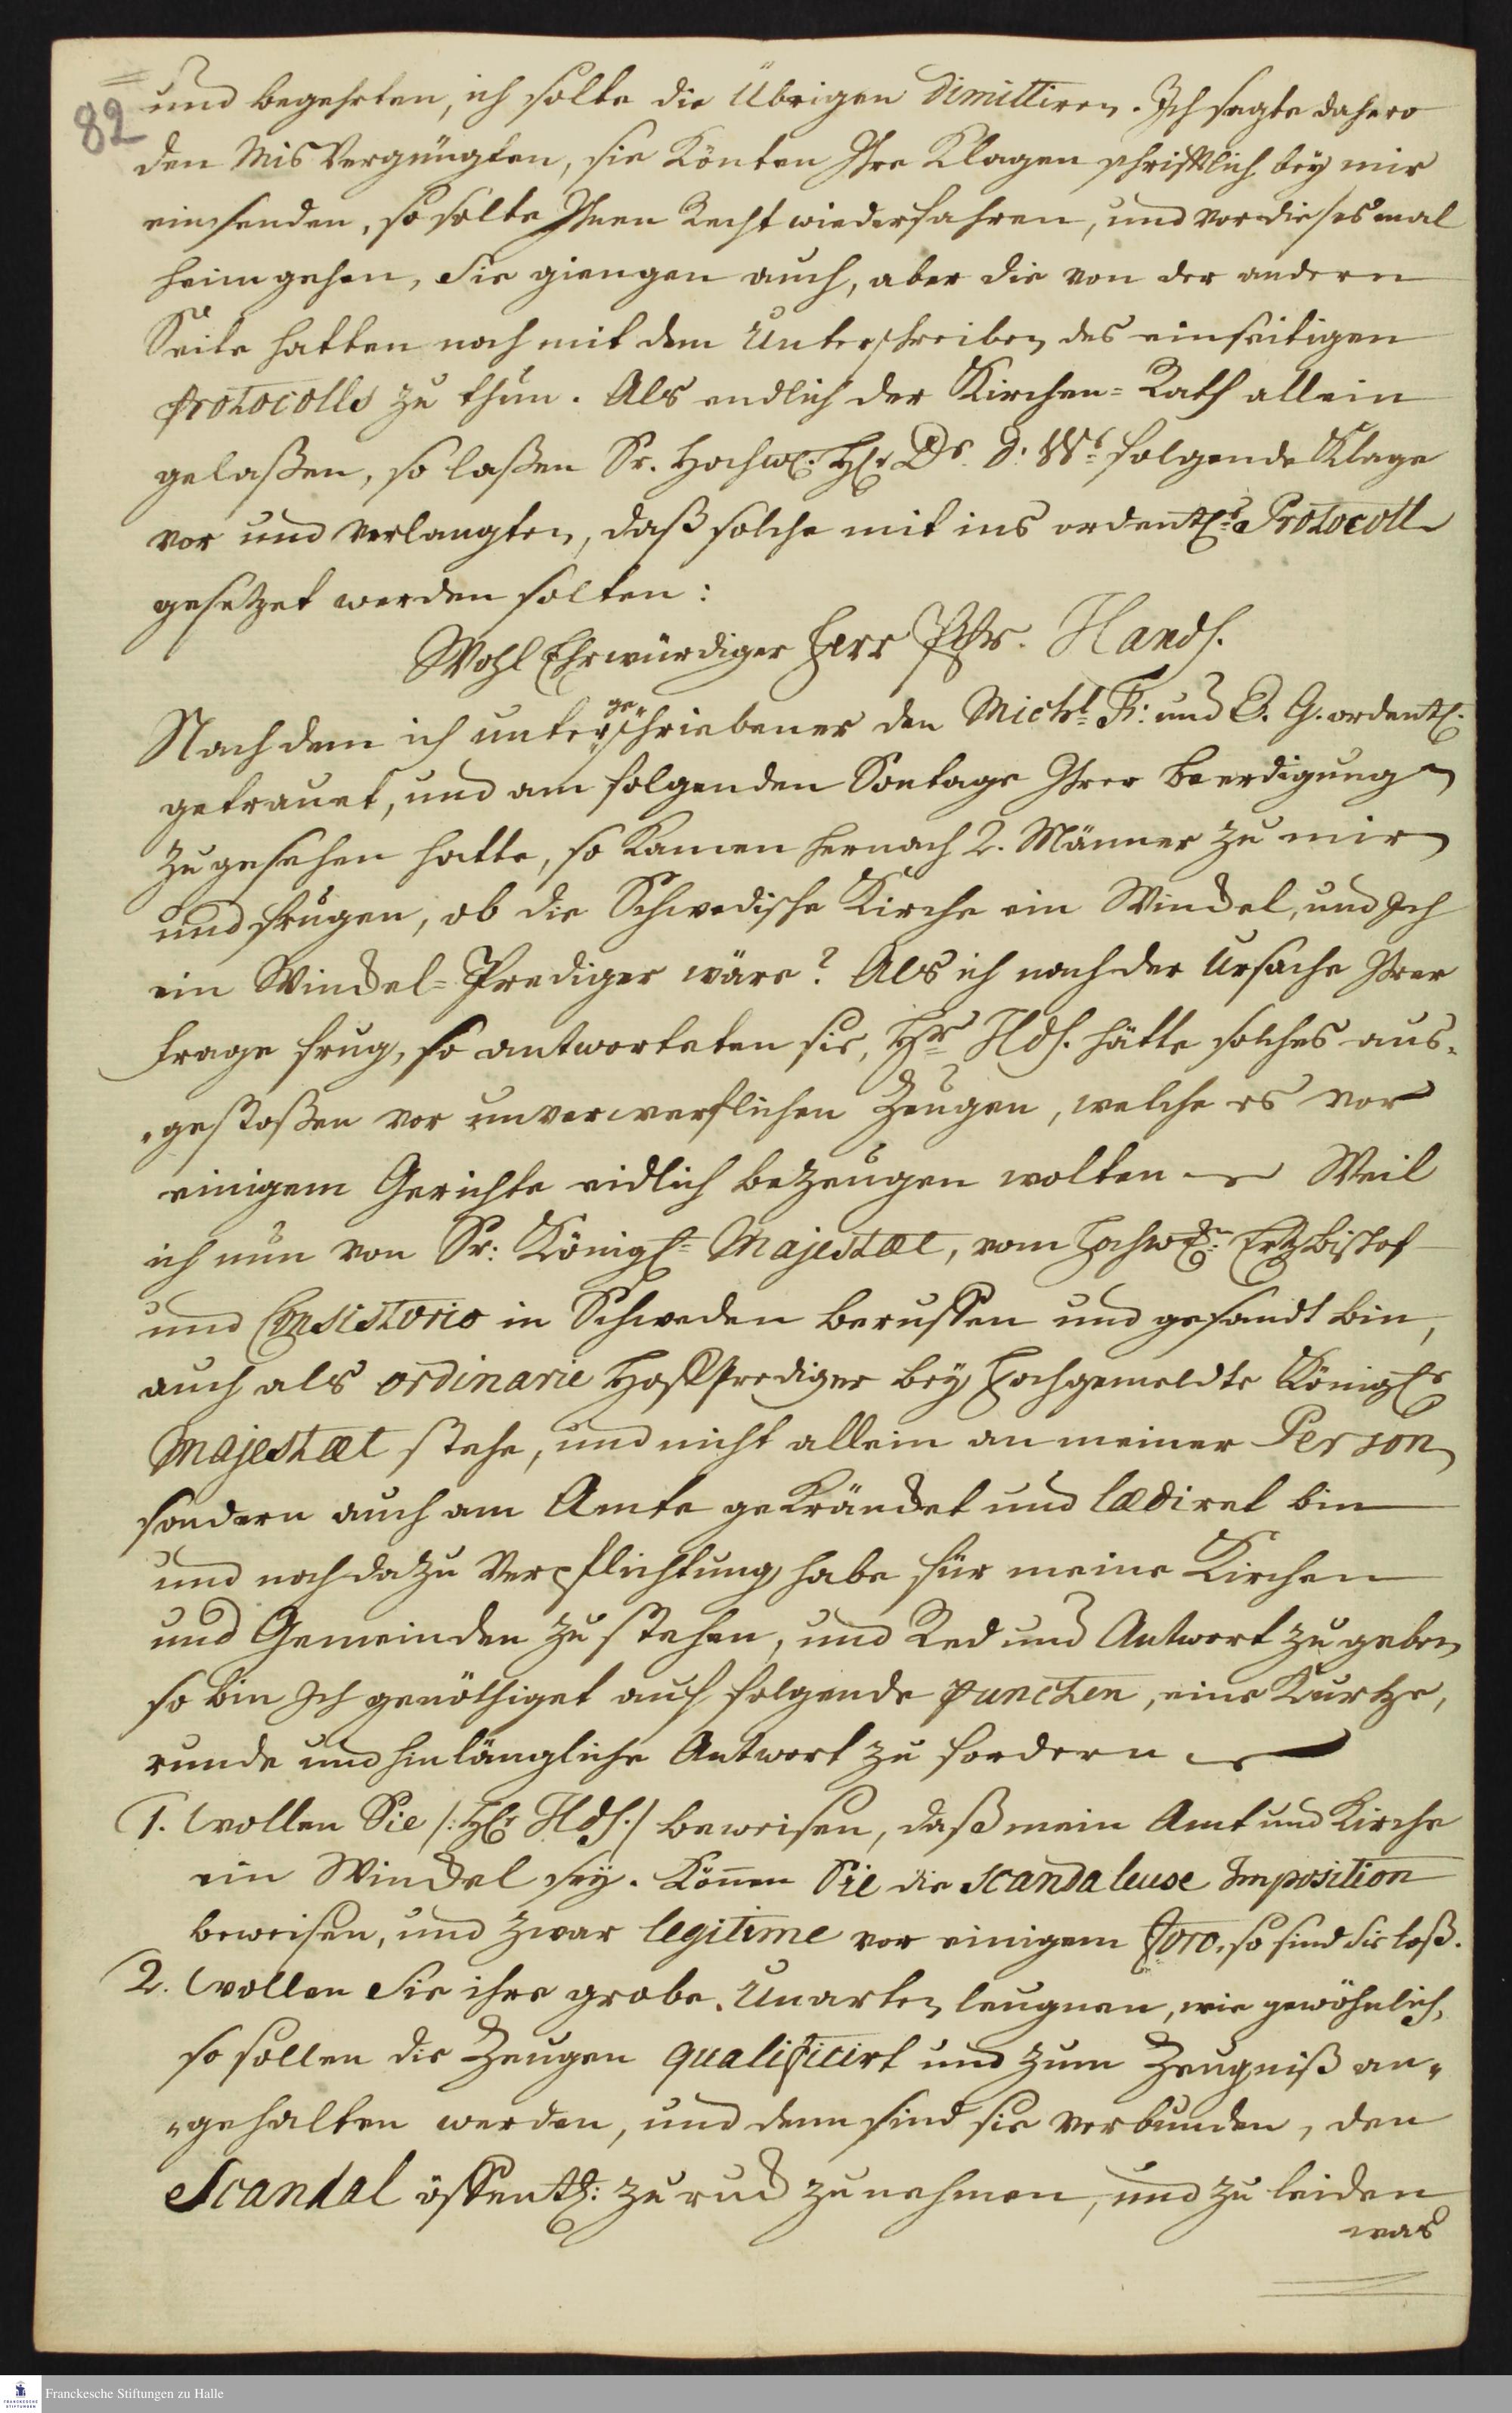 82
und begehrten, ich solte die Übrigen dimittiren. Ich sagte dahero
den Mis Vergnügten, sie Könten Ihre Klagen schrifftlich bey mir
einsenden, so solte Ihnen Recht wiederfahren, und vor dieses mal
heim gehen, Sie giengen auch, aber die von der andern
Seite hatten noch mit dem Unterschreiben des einseitigen
Protocolls zu thun. Als endlich der Kirchen=Rath allein
gelaßen, so laßen Sr. Hochw. H Dr. d: Wr. folgende Klage
vor und verlangten, daß solche mit ins ordentl. Protocoll
gesetzet werden solten:
Wohl Ehrwürdiger Herr Pstr. Handf.
Nach dem ich untergeschriebener den Michl. Fr: und E. G. ordentl.
getrauet, und am folgenden Sontage Ihrer Beerdigung
zugesehen hatte, so Kamen hernach 2. Männer zu mir
und frugen, ob die Schwedische Kirche ein Winckel, und Ich
ein Winckel=Prediger wäre? Als ich nach der Ursache Ihrer
Frage frug, so antworteten sie, Hr Hdf. hätte solches aus„
„gestoßen vor unverwerflichen Zeugen, welche es vor
einigem Gerichte eidlich bezeugen wolten — Weil
ich nun von Sr: Königl= Majestæt, vom Hochw.n Ertzbischof
und Consistorio in Schweden beruffen und gesandt bin,
auch als ordinarie Hoffprediger bey Hochgemeldte Königlr
Majestæt stehe, und nicht allein an meiner Person
sondern auch am Amte geKräncket und lædiret bin
und noch dazu Verpflichtung habe für meine Kirchen
und Gemeinden zu stehen, und Red und Antwort zu geben
so bin Ich genöthiget auf folgende puncten, eine Kurtze,
runde und hinlängliche Antwort zu fordern —
1. wollen Sie /: H Hdf. / beweisen, daß mein Amt und Kirche
ein Winckel sey. Könen Sie die scandaleuse Imposition
beweisen, und zwar legitime vor einigem Foro, so sind sie loß.
2. wollen Sie ihre grobe Unarten leugnen, wie gewöhnlich,
so sollen die Zeugen qualificirt und zum Zeugniß an„
„gehalten werden, und denn sind sie verbunden, den
Scandal öffentl: zuruck zunehmen, und zu leiden
was
FRANCKESCHE STIFTUNGEN
Franckesche Stiftungen zu Halle